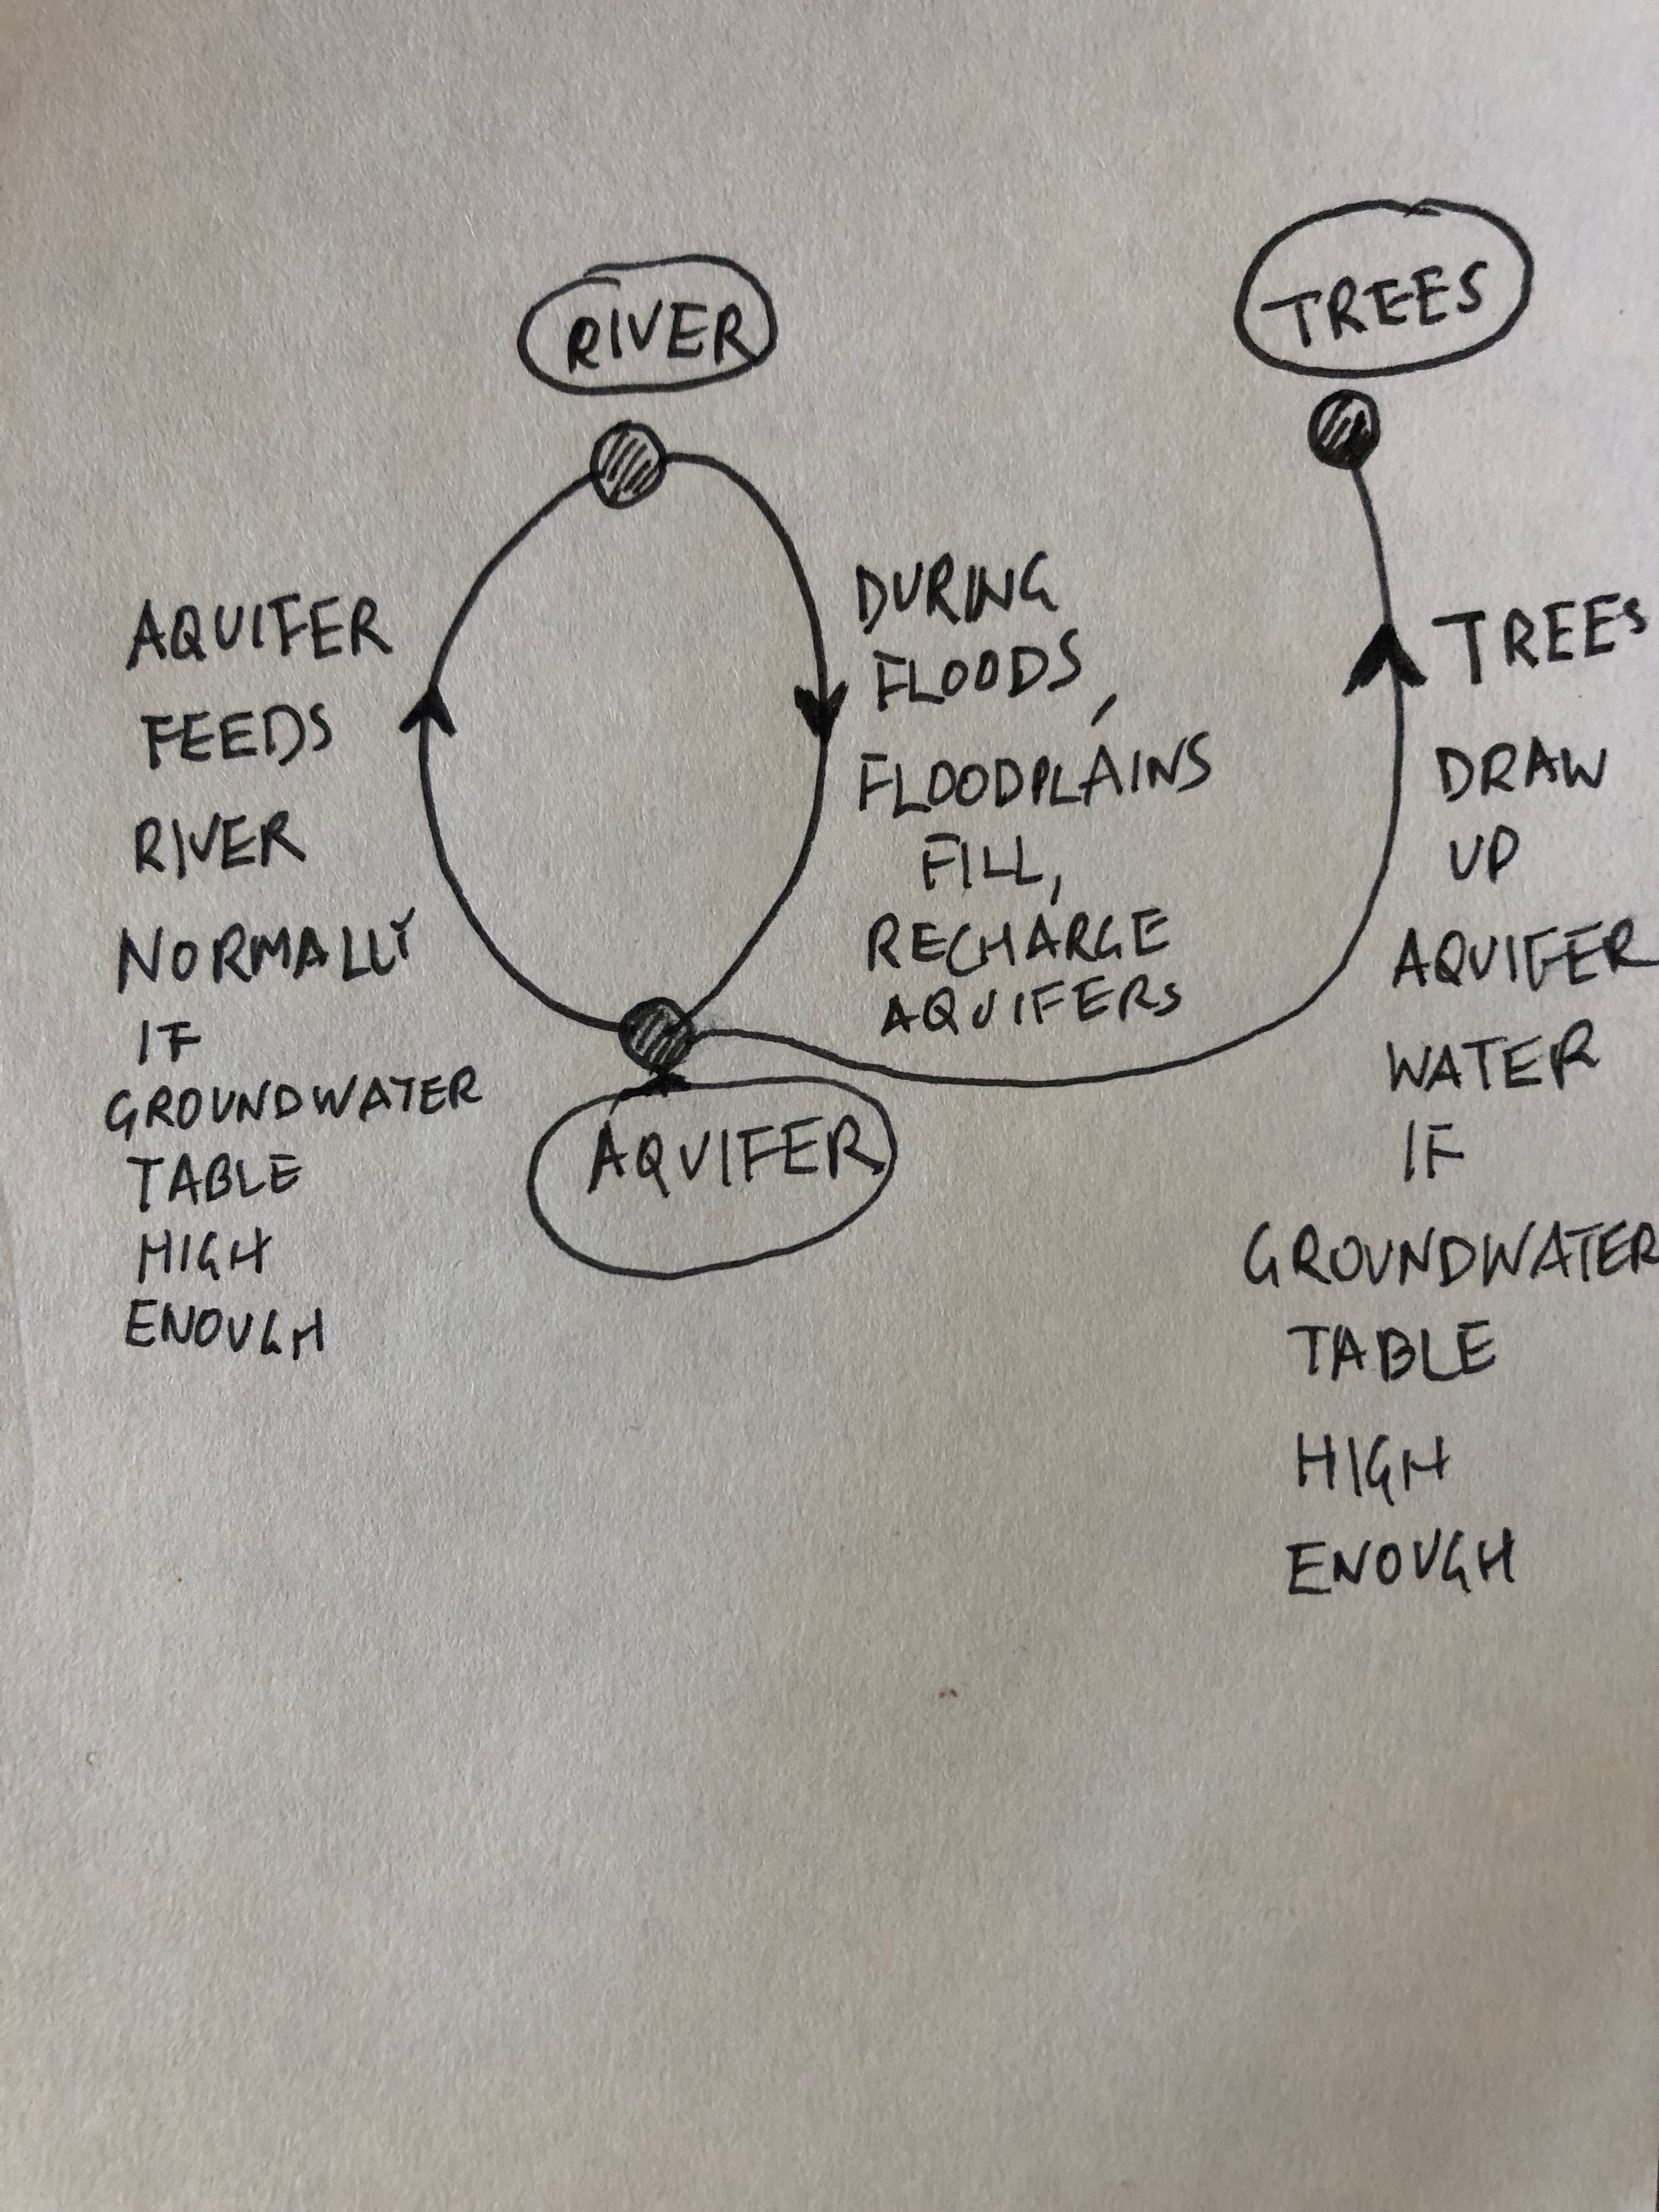 RIVER
TREES
AQUIFER
FEEDS
RIVER
NORMALLY
IF
GROUNDWATER
TABLE
HIGH
ENOUGH
DURING
FLOODS,
FLOODPLAINS
FILL,
RECHARGE
AQUIFERS
TREES
DRAW
UP
AQUIFER
WATER
IF
GROUNDWATER
TABLE
HIGH
ENOUGH
AQUIFER